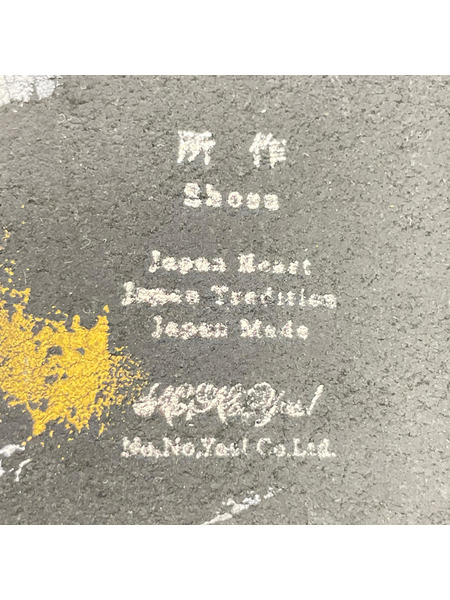 所作
Shosa
Japan Heart
Japan Tradition
Japan Made
No,No,Yes!
No,No,Yes! Co.Ltd.